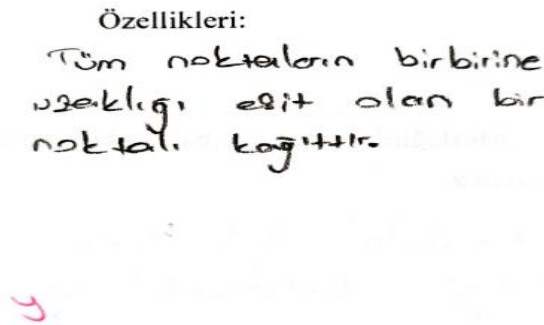 Özellikleri:
Tüm noktaların birbirine
uzaklığı eşit olan bir
noktalı kağıttır.
y